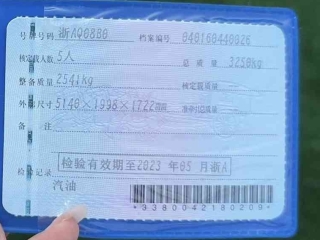 号牌号码 浙AQ0880 档案编号 040160440026
核定载人数 5人 总质量 3250kg
整备质量 2541kg 核定载质量
外廓尺寸 5140×1998×1722mm 准牵引总质量
备注
检验有效期至2023年05月浙A
检验记录
汽油
*3380042180209*